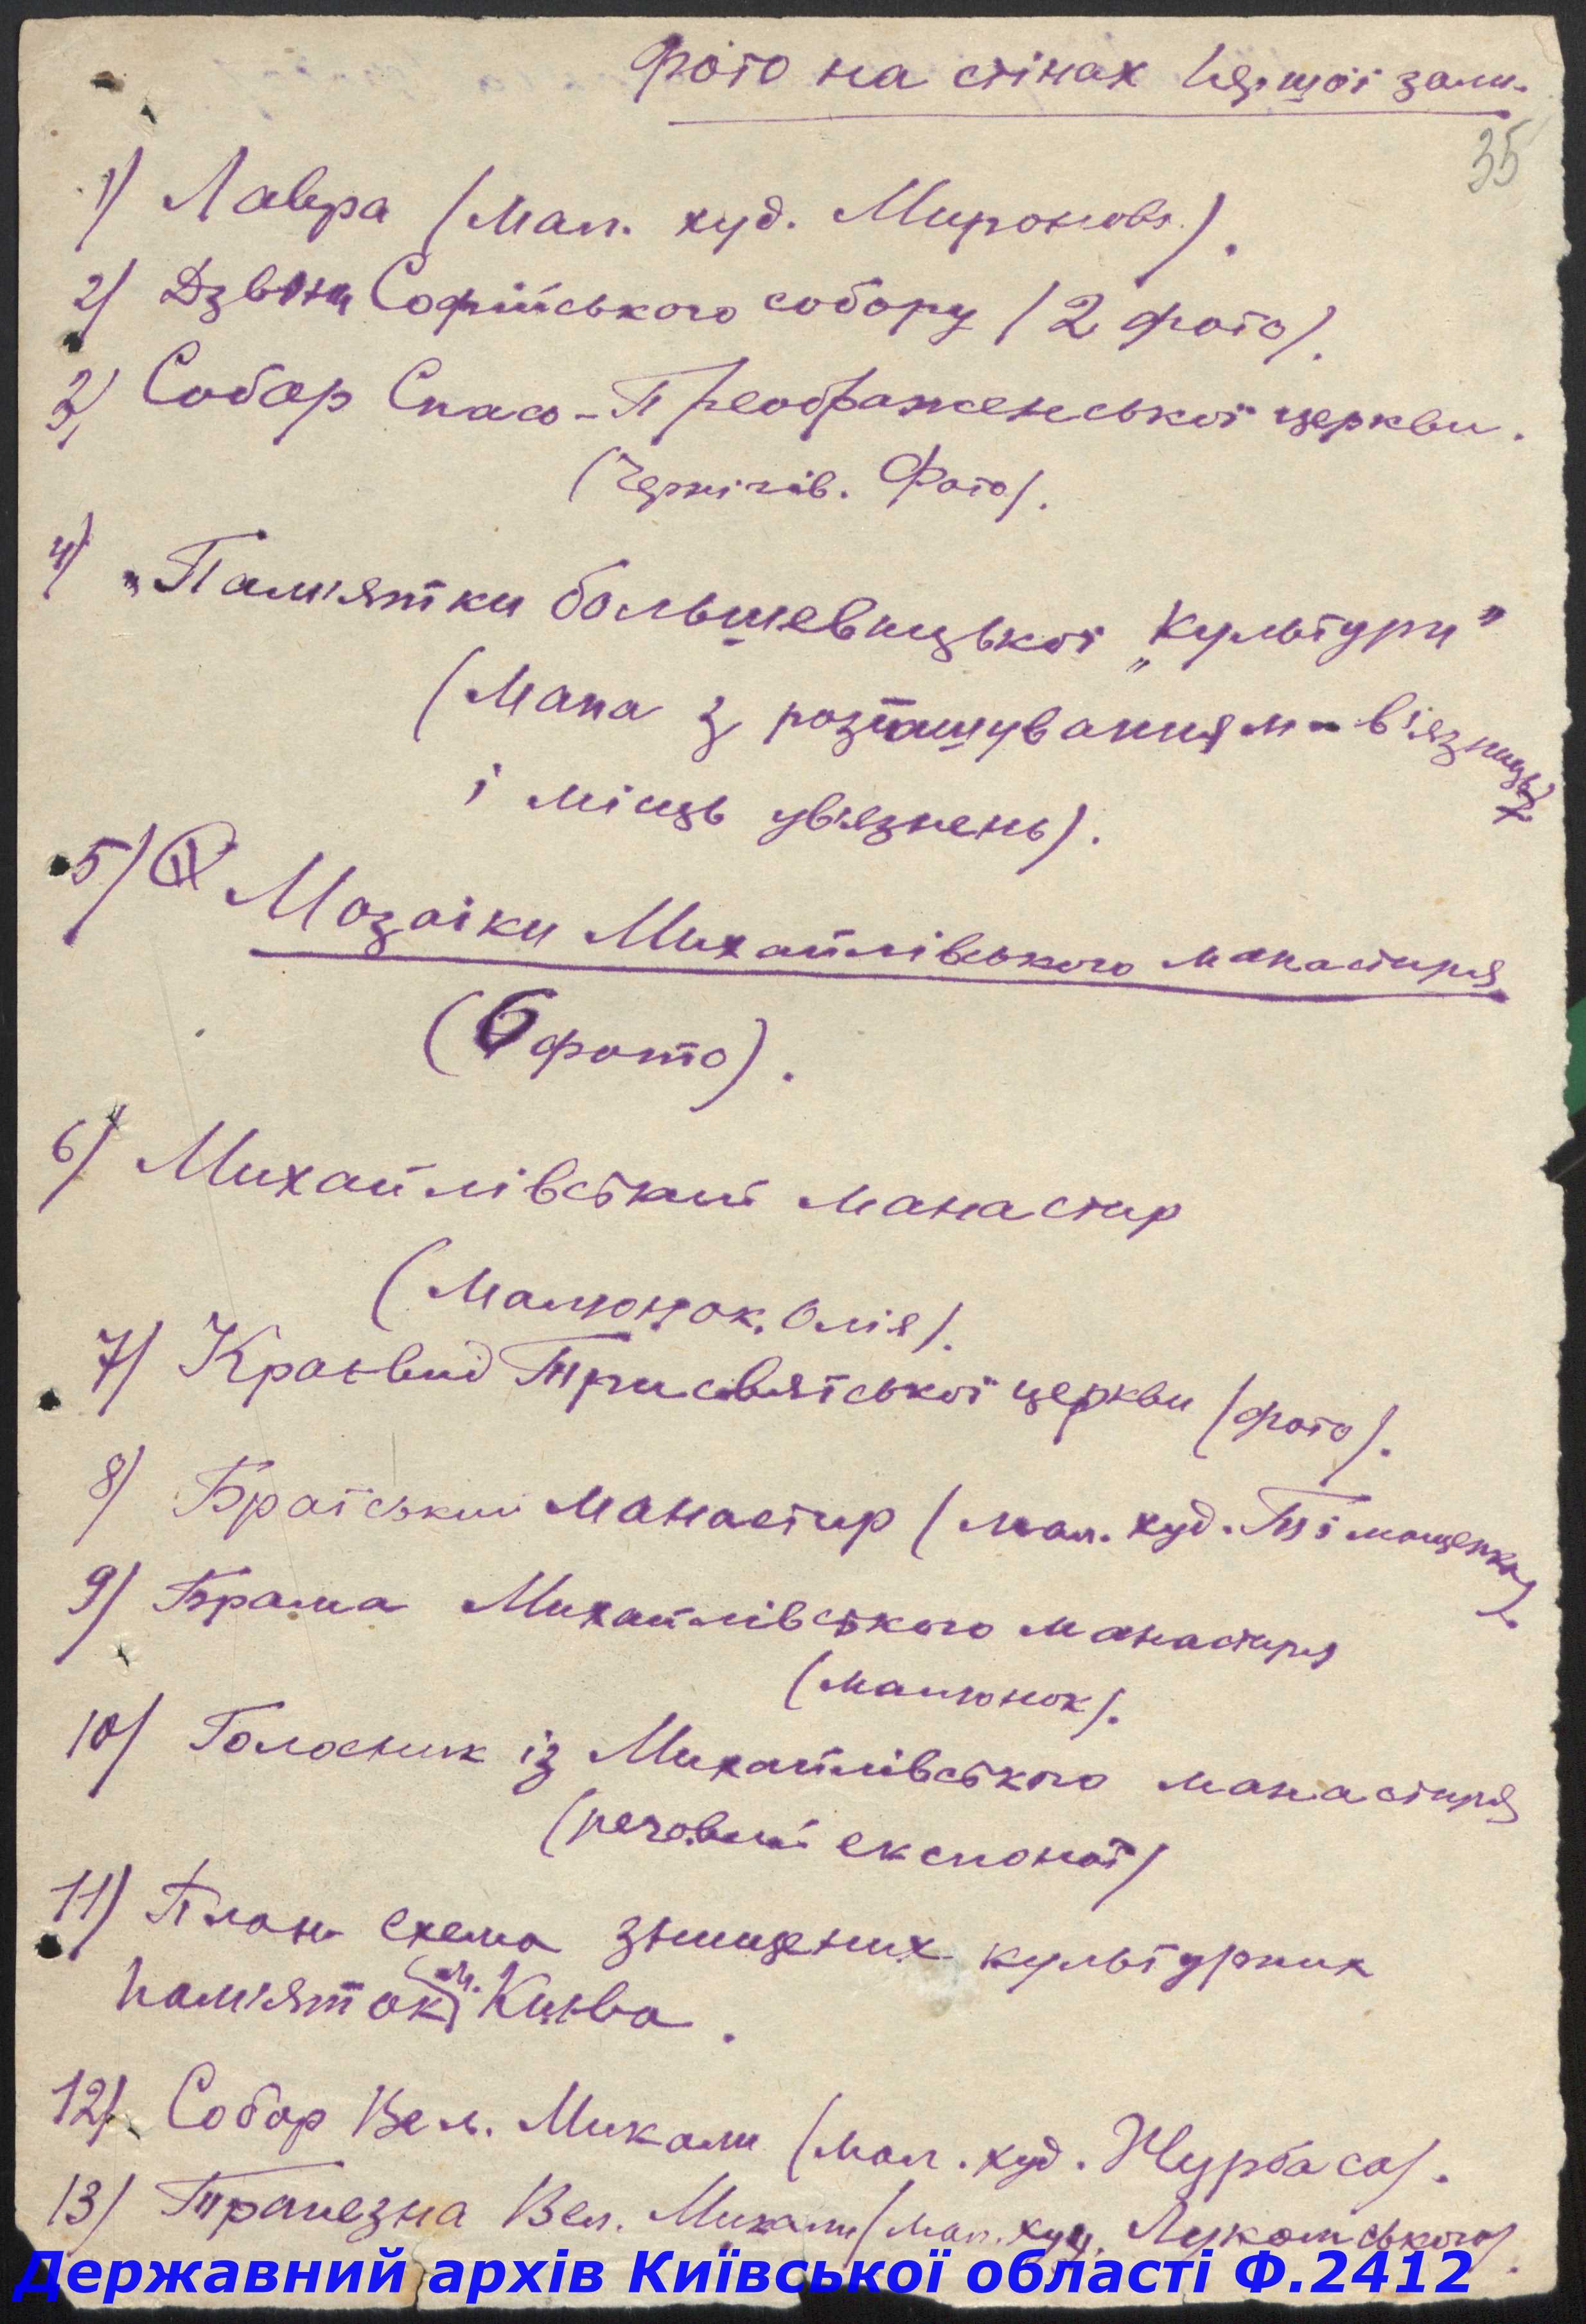 Фото на стінах першої зали.
35
1) Лавра (мал. худ. Миронова).
2) Дзвони Софійського собору (2 фото).
3) Собор Спасо-Преображенської церкви.
(Чернігів. Фото).
4) „Пам'ятки большевицької „культури"
(Мапа з розташуванням в'язниць
і місць ув'язнень).
5) Мозаіки Михайлівського манастиря
(6 фото).
6) Михайлівський манастир
(Малюнок. Олія).
7) Краєвид Трисвятської церкви (фото).
8) Братський манастир (мал. худ. Тімощенка).
9) Брама Михайлівського манастиря
(малюнок).
10) Голосник із Михайлівського манастиря
(речовий експонат)
11) План схема знищених культурних
пам'яток м. Києва.
12) Собор Вел. Миколи (мал. худ.
13) Трапезна Вел. Миколи (мал. худ. Лукомського).
Державний архів Київської області Ф.2412